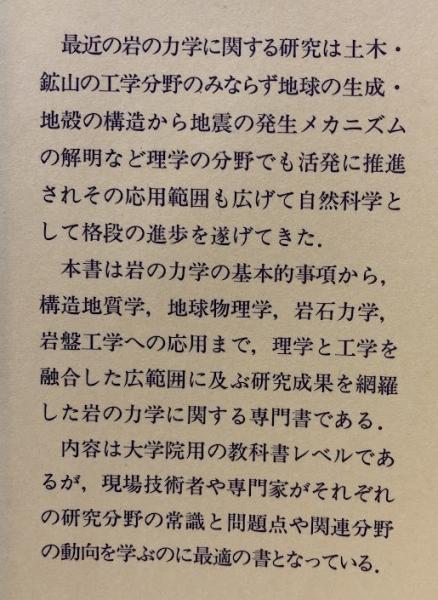 最近の岩の力学に関する研究は土木・
鉱山の工学分野のみならず地球の生成・
地殻の構造から地震の発生メカニズム
の解明など理学の分野でも活発に推進
されその応用範囲も広げて自然科学と
して格段の進歩を遂げてきた．
本書は岩の力学の基本的事項から，
構造地質学，地球物理学，岩石力学，
岩盤工学への応用まで，理学と工学を
融合した広範囲に及ぶ研究成果を網羅
した岩の力学に関する専門書である．
内容は大学院用の教科書レベルであ
るが，現場技術者や専門家がそれぞれ
の研究分野の常識と問題点や関連分野
の動向を学ぶのに最適の書となっている．